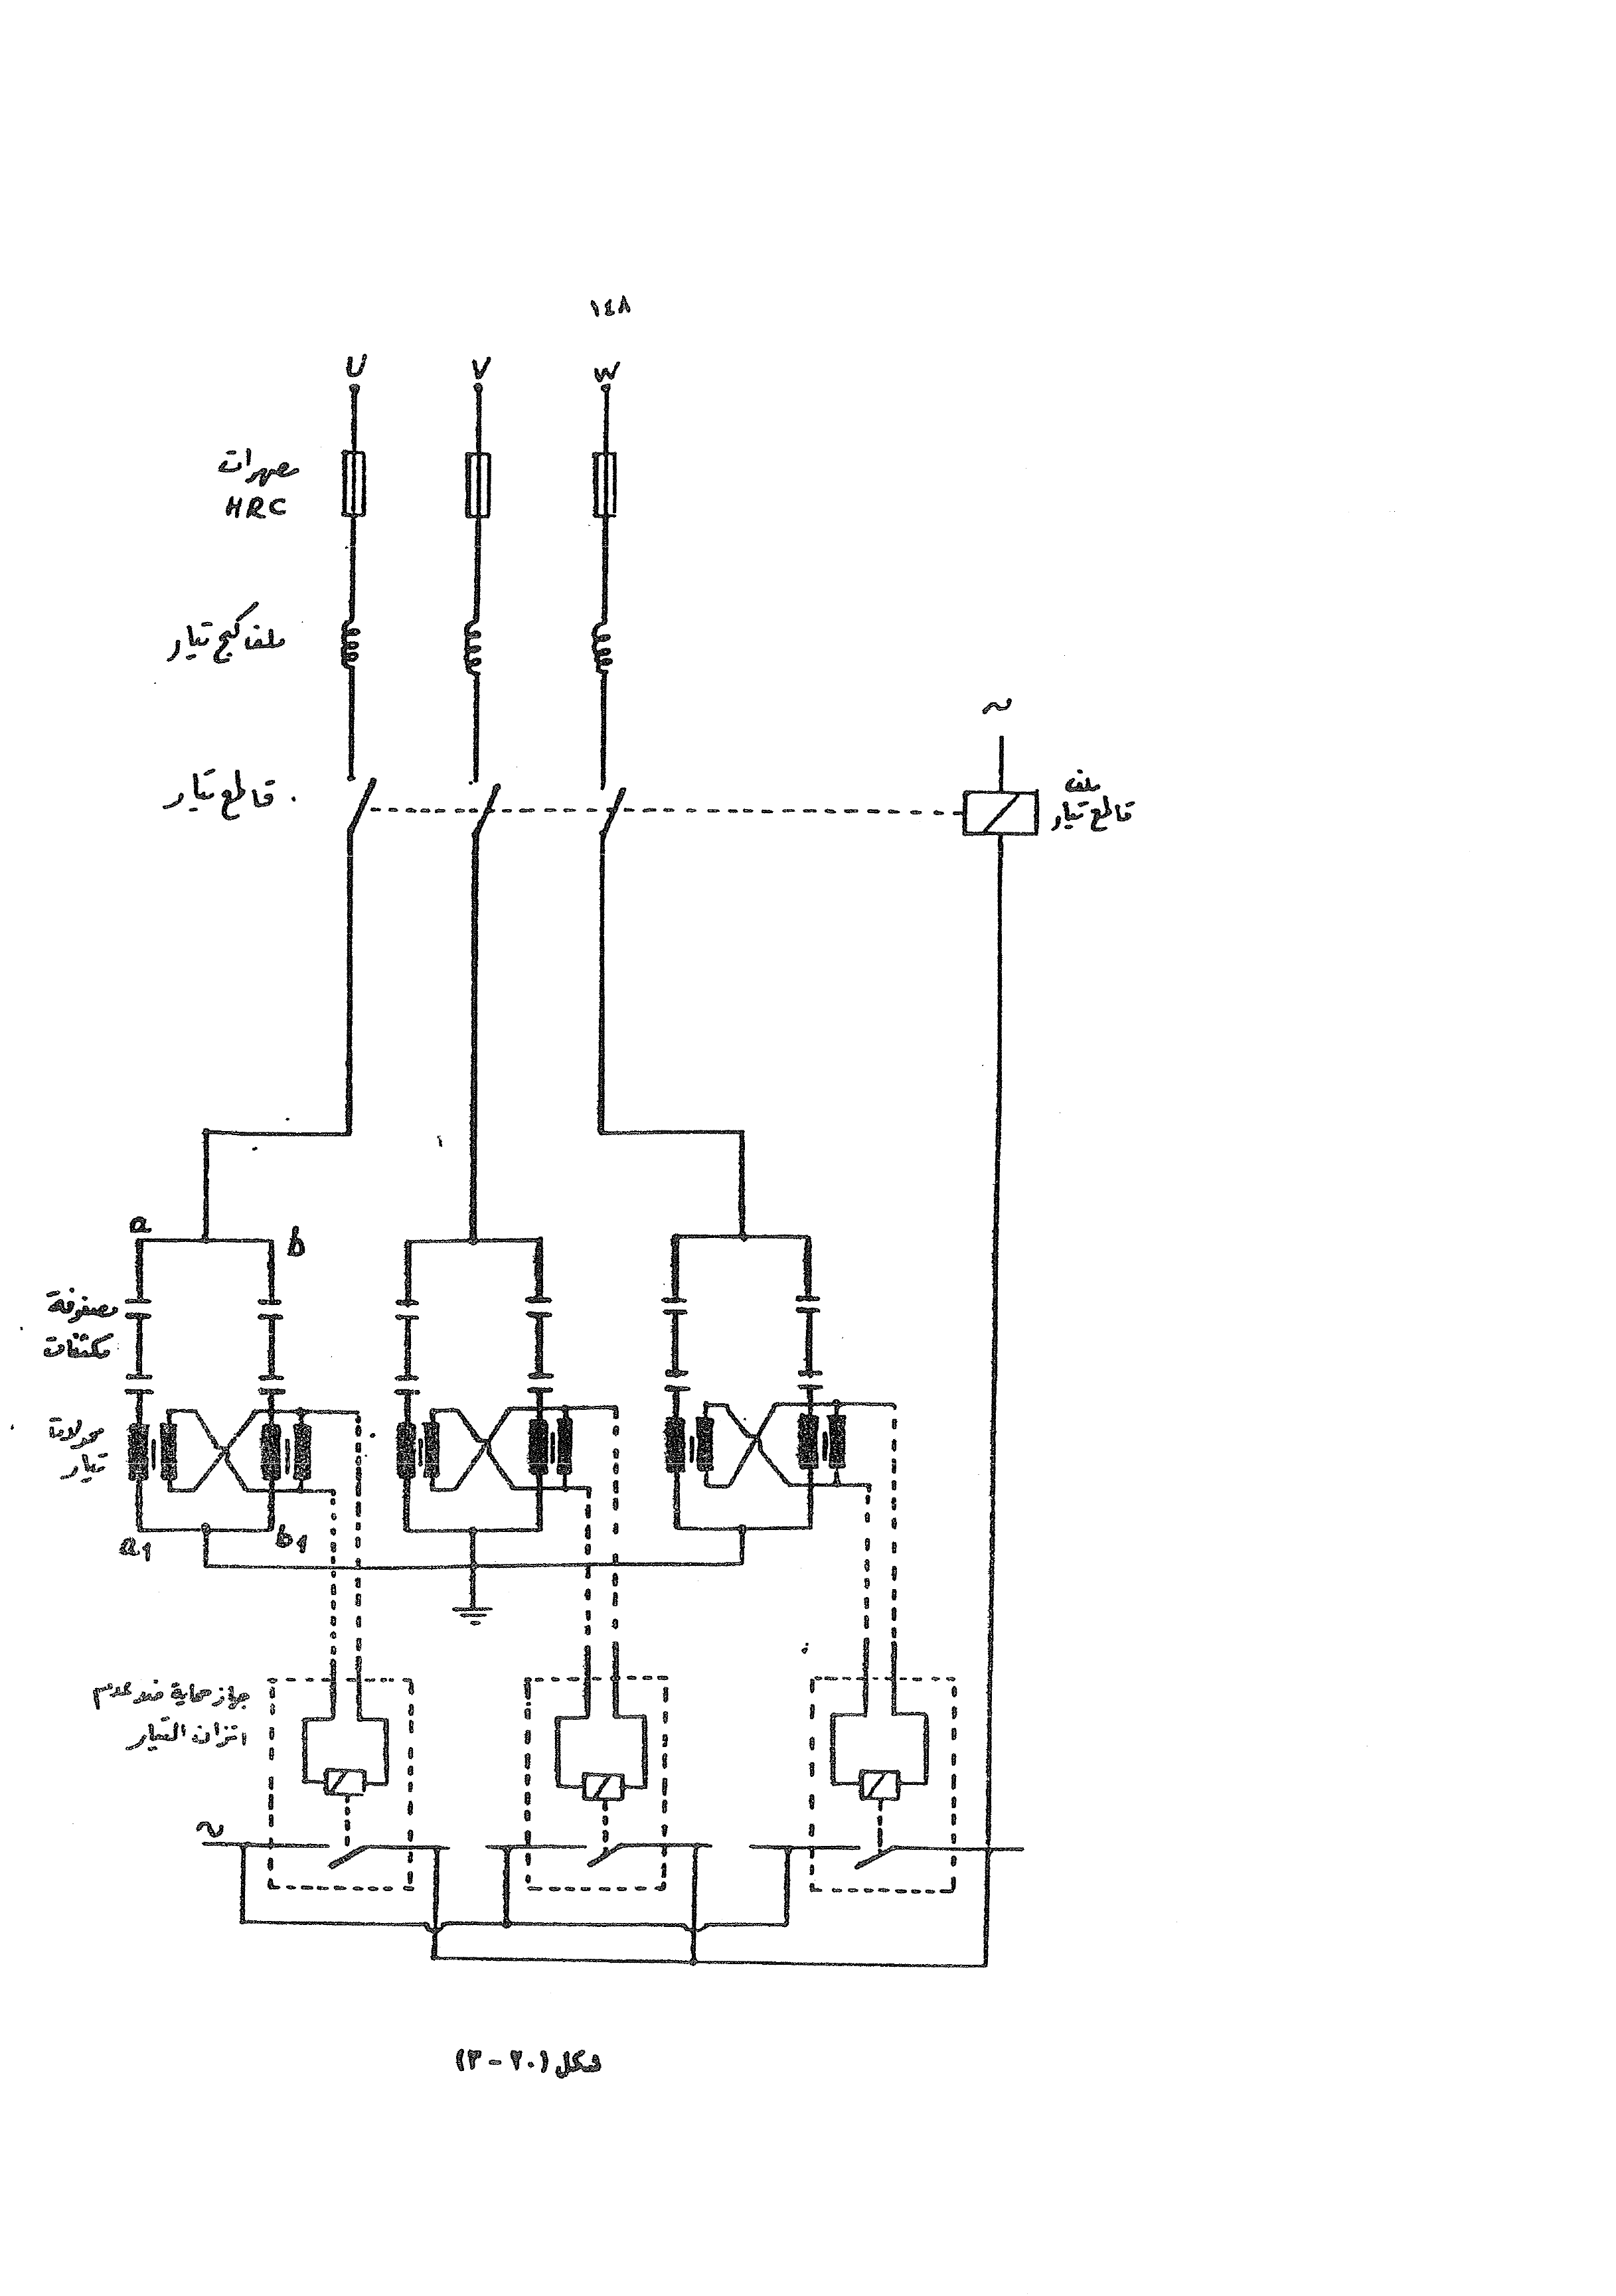 ١٤٨
U V W
مصهرات
HRC
ملف كبح تيار
~
قاطع تيار
ملف
قاطع تيار
a b
مصفوفة
مكثفات
محولات
تيار
a1 b1
جهاز حماية ضد عدم
اتزان التيار
~
شكل (٢٠-٣)